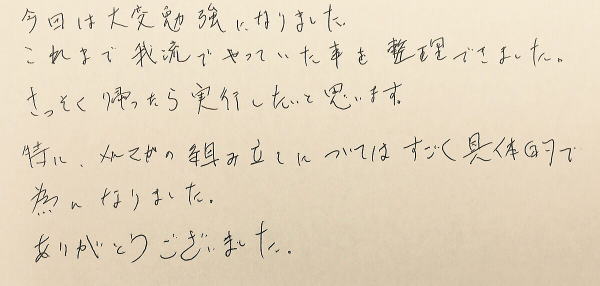 今回は大変勉強になりました。
これまで我流でやっていた事を整理できました。
さっそく帰ったら実行したいと思います。
特に、メルマガの組み立てについてはすごく具体的で
為になりました。
ありがとうございました。